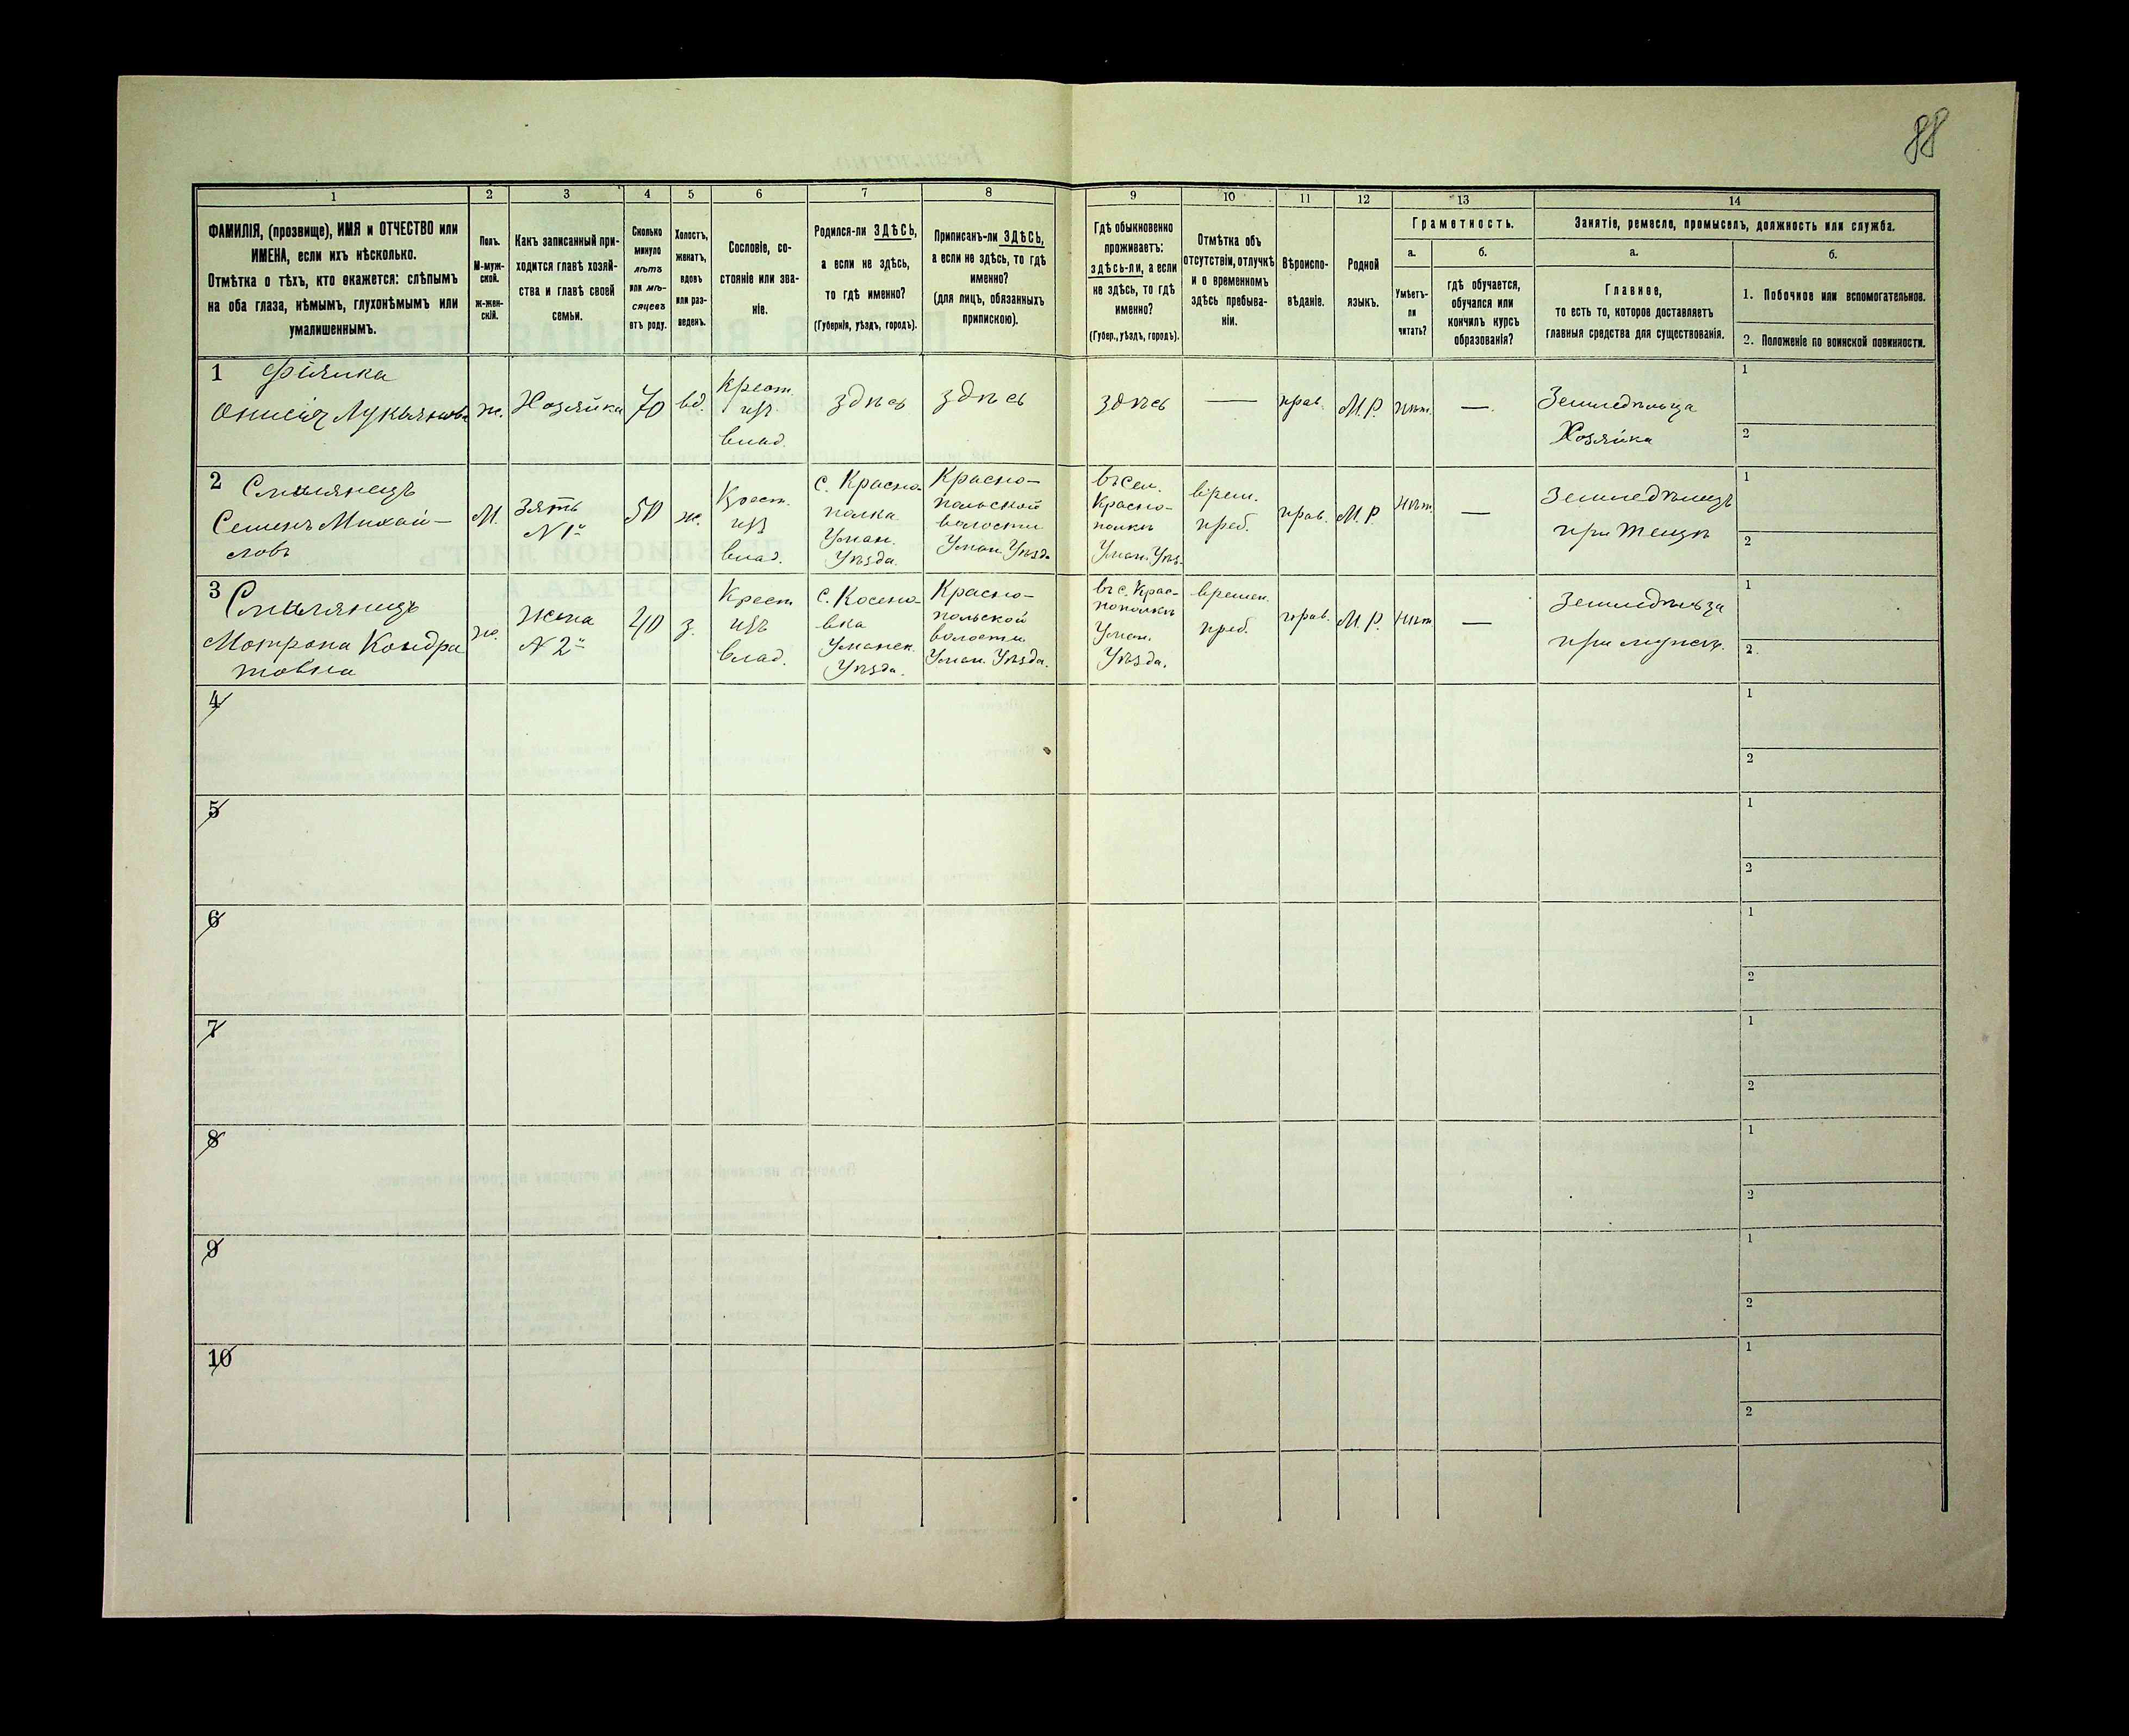 88
1
2
3
4
5
6
7
8
9
10
11
12
13
14
ФАМИЛІЯ, (прозвище), ИМЯ и ОТЧЕСТВО или
ИМЕНА, если ихъ нѣсколько.
Отмѣтка о тѣхъ, кто окажется: слѣпымъ
на оба глаза, нѣмымъ, глухонѣмымъ или
умалишеннымъ.
Полъ.
М-муж-
ской.
ж-жен-
скій.
Какъ записанный при-
ходится главѣ хозяй-
ства и главѣ своей
семьи.
Сколько
минуло
лѣтъ
или мѣ-
сяцевъ
отъ роду.
Холостъ,
женатъ,
вдовъ
или раз-
веденъ.
Сословіе, со-
стояніе или зва-
ніе.
Родился-ли ЗДѢСЬ,
а если не здѣсь,
то гдѣ именно?
(Губернія, уѣздъ, городъ).
Приписанъ-ли ЗДѢСЬ,
а если не здѣсь, то гдѣ
именно?
(для лицъ, обязанныхъ
припискою).
Гдѣ обыкновенно
проживаетъ:
здѣсь-ли, а если
не здѣсь, то гдѣ
именно?
(Губер., уѣздъ, городъ).
Отмѣтка объ
отсутствіи, отлучкѣ
и о временномъ
здѣсь пребыва-
ніи.
Вѣроиспо-
вѣданіе.
Родной
языкъ.
Грамотность.
а.
Умѣетъ-
ли
читать?
б.
гдѣ обучается,
обучался или
кончилъ курсъ
образованія?
Занятіе, ремесло, промыселъ, должность или служба.
а.
Главное,
то есть то, которое доставляетъ
главныя средства для существованія.
б.
1. Побочное или вспомогательное.
2. Положеніе по воинской повинности.
1
Онисія Лукьянова
ж.
Хозяйка
70
вд.
Крест.
изъ
влад.
здѣсь
здѣсь
здѣсь
—
прав.
М.Р.
нѣт.
—.
Земледѣлица
Хозяйка
1
2
2 Смилянецъ
Семенъ Михай-
ловъ
М.
Зять
N 1й
50
ж.
Крест.
изъ
влад.
с. Красно-
полка
Уман.
Уѣзда.
Красно-
польской
волости
Уман. Уѣзда
въ сел.
Красно-
полкѣ
Уман. Уѣз.
врем.
преб.
прав.
М.Р.
Нѣт.
—
Земледѣлецъ
при Тещѣ
1
2
3 Смилянецъ
Мотрона Кондра
товна
ж.
Жена
N 2й
40
з.
Крест
изъ
влад.
с. Косено-
вка
Уманск.
Уѣзда.
Красно-
польской
волости
Уман. Уѣзда.
въ с. Крас-
нополкѣ
Уман.
Уѣзда.
времен.
преб.
прав.
М.Р.
Нѣт
—
при мужѣ.
1
2.
4
1
2
5
1
2
6
1
2
7
1
2
8
1
2
9
1
2
10
1
2